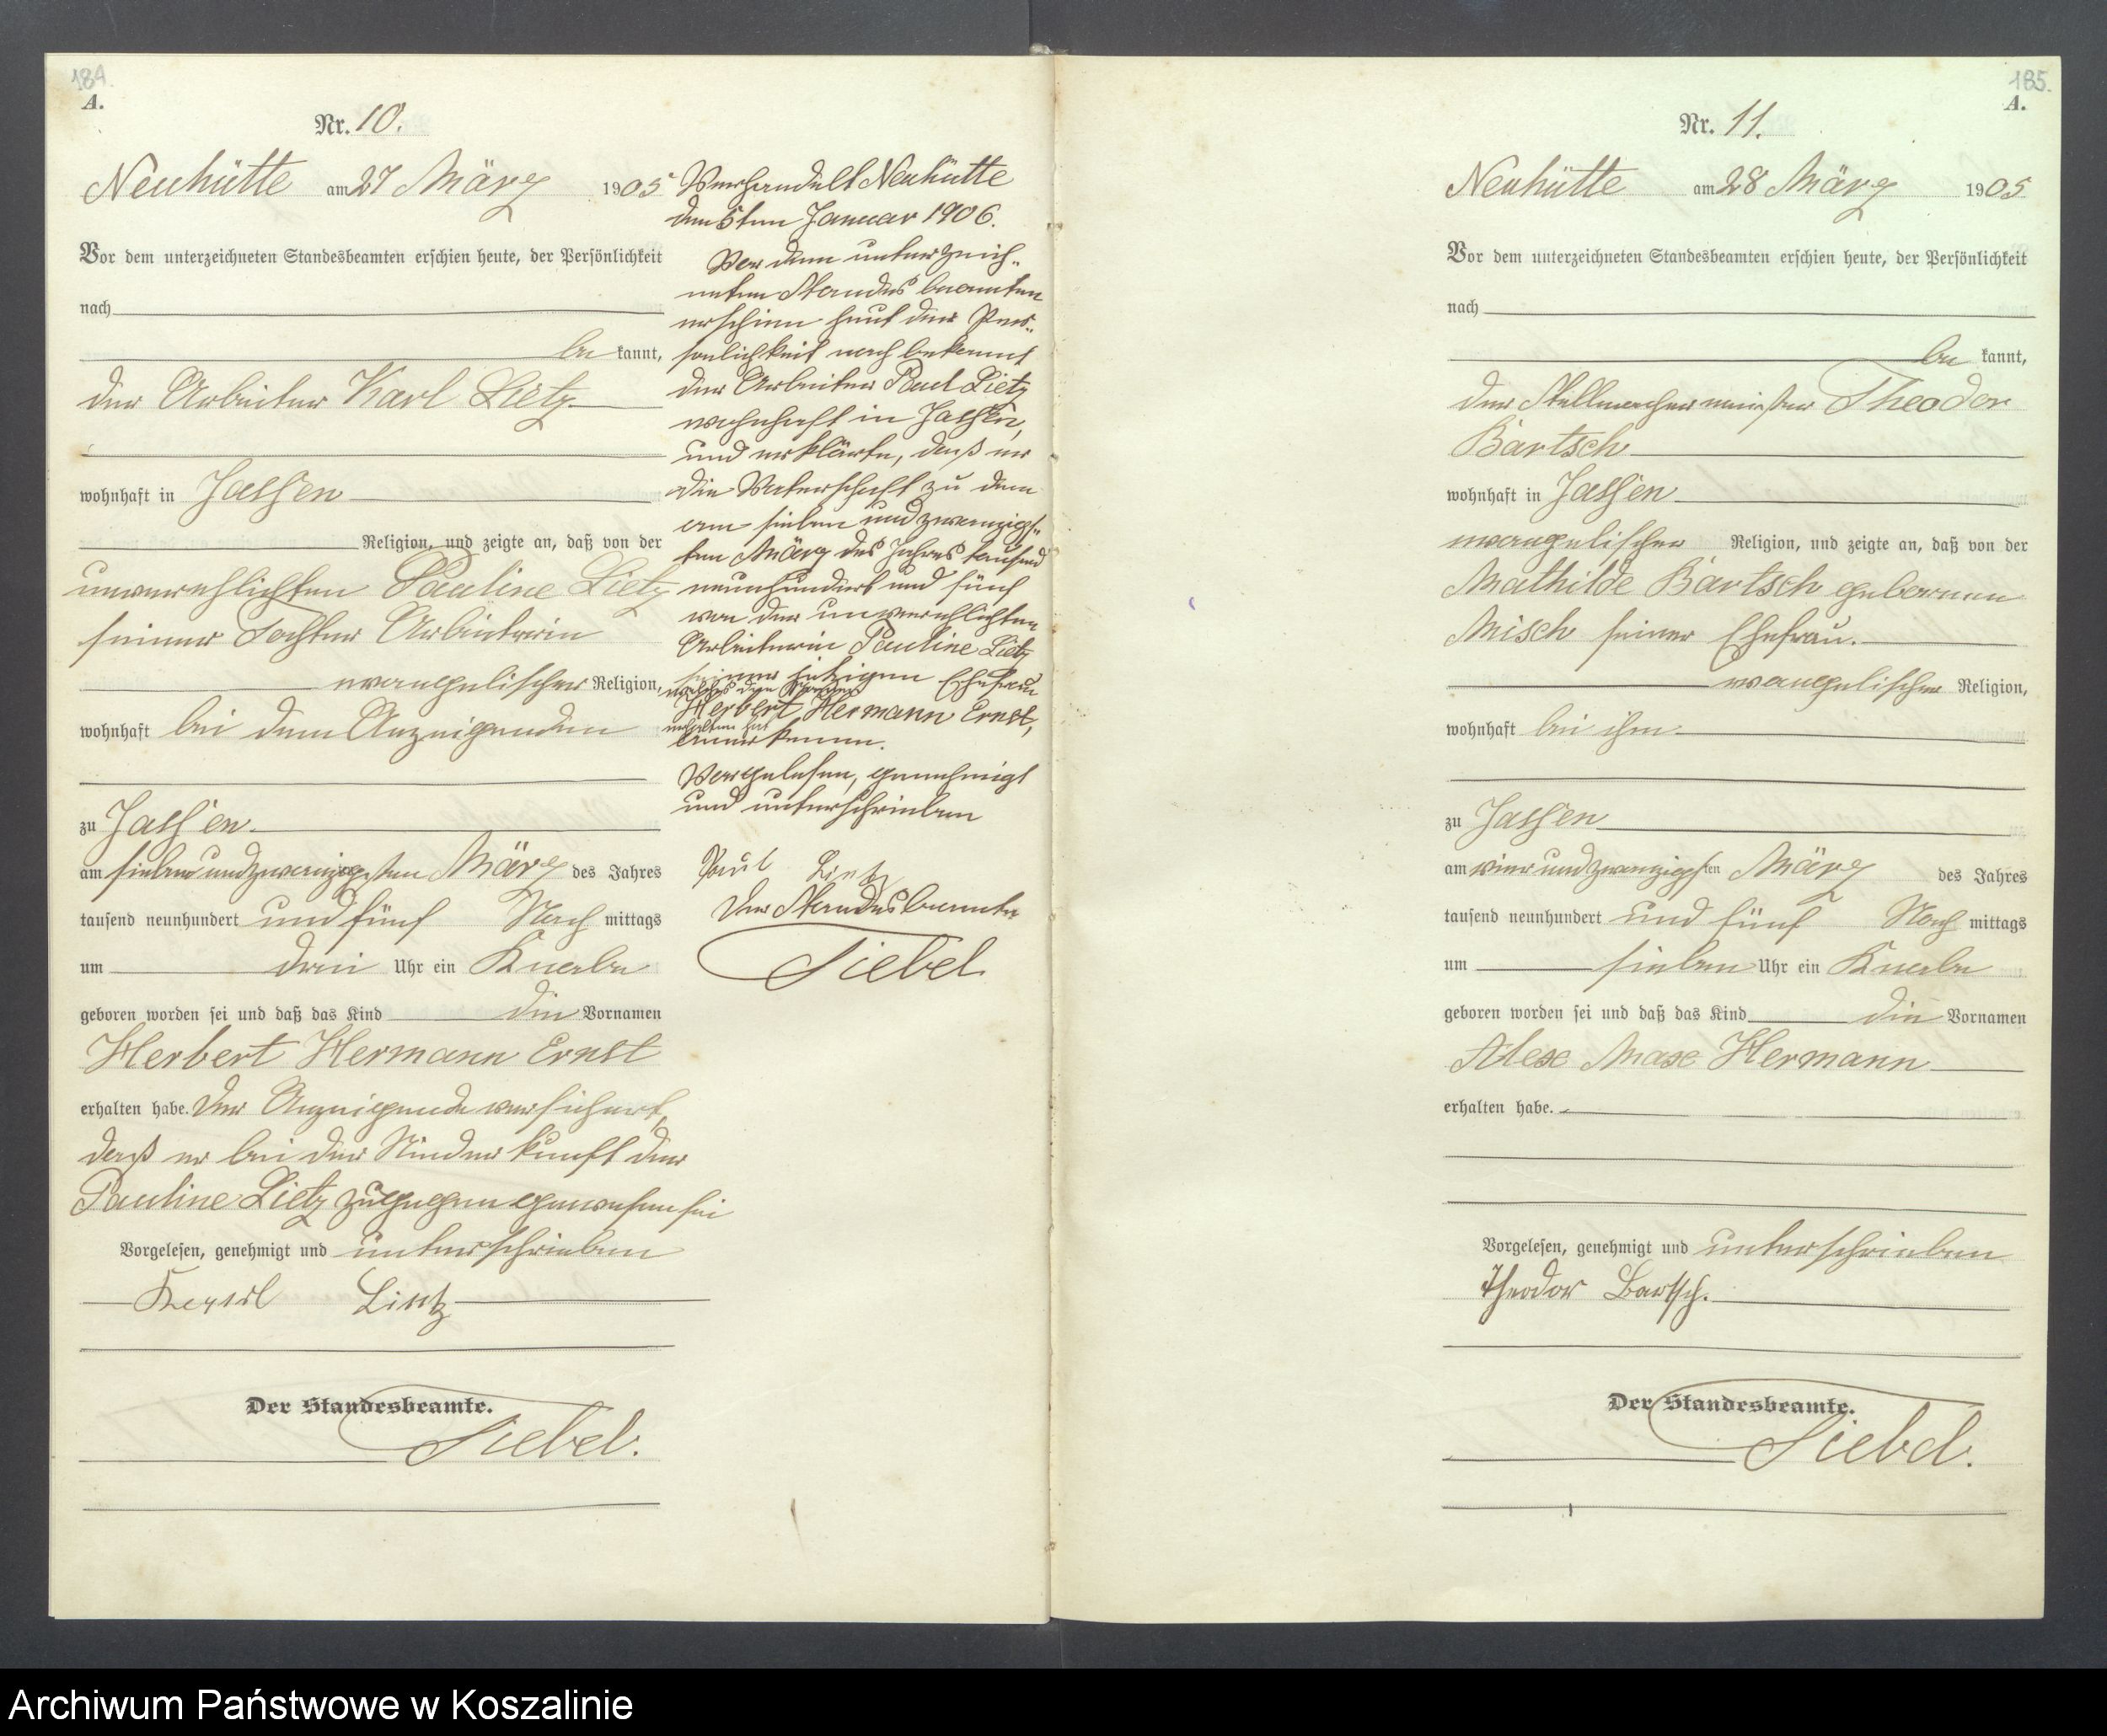 184.
A.
Nr. 10.
Neuhütte am 27 März 1905
Vor dem unterzeichneten Standesbeamten erschien heute, der Persönlichkeit
nach
be kannt,
der Arbeiter Karl Lietz
wohnhaft in Jassen
Religion, und zeigte an, daß von der
unverehlichten Pauline Lietz
seiner Tochter Arbeiterin
evangelischer Religion,
wohnhaft bei dem Anzeigenden
zu Jassen
am sieben und zwanzigsten März des Jahres
tausend neunhundert und fünf Nach mittags
um drei Uhr ein Knabe
geboren worden sei und daß das Kind die Vornamen
Herbert Hermann Ernst
erhalten habe. Der Anzeigende versichert,
daß er bei der Niederkunft der
Pauline Lietz zugegen gewesen sei
Vorgelesen, genehmigt und unterschrieben
Karl Lietz
Der Standesbeamte.
Siebel.
Verhandelt Neuhütte
den 5ten Januar 1906.
Vor dem unterzeich-
neten Standesbeamten
erschien heut der Per-
sönlichkeit nach bekannt
der Arbeiter Paul Lietz
wohnhaft in Jassen,
und erklärte, daß er
die Vaterschaft zu dem
am sieben und zwanzigs-
ten März des Jahres tausend
neunhundert und fünf
von der unverehlichten
Arbeiterin Pauline Lietz
seiner jetzigen Ehefrau
welches die Namen
Herbert Hermann Ernst,
erhalten hat
anerkenne.
Vorgelesen, genehmigt
und unterschrieben
Paul Lietz
Der Standesbeamte
Siebel
185.
A.
Nr. 11.
Neuhütte am 28 März 1905
Vor dem unterzeichneten Standesbeamten erschien heute, der Persönlichkeit
nach
be kannt,
der Stellmachermeister Theodor
Bartsch
wohnhaft in Jassen
evangelischer Religion, und zeigte an, daß von der
Mathilde Bartsch geborenen
Misch seiner Ehefrau.
evangelischer Religion,
wohnhaft bei ihm
zu Jassen
am vier und zwanzigsten März des Jahres
tausend neunhundert und fünf Nach mittags
um sieben Uhr ein Knabe
geboren worden sei und daß das Kind die Vornamen
Alex Max Hermann
erhalten habe.
Vorgelesen, genehmigt und unterschrieben
Theodor Bartsch.
Der Standesbeamte.
Siebel.
Archiwum Państwowe w Koszalinie